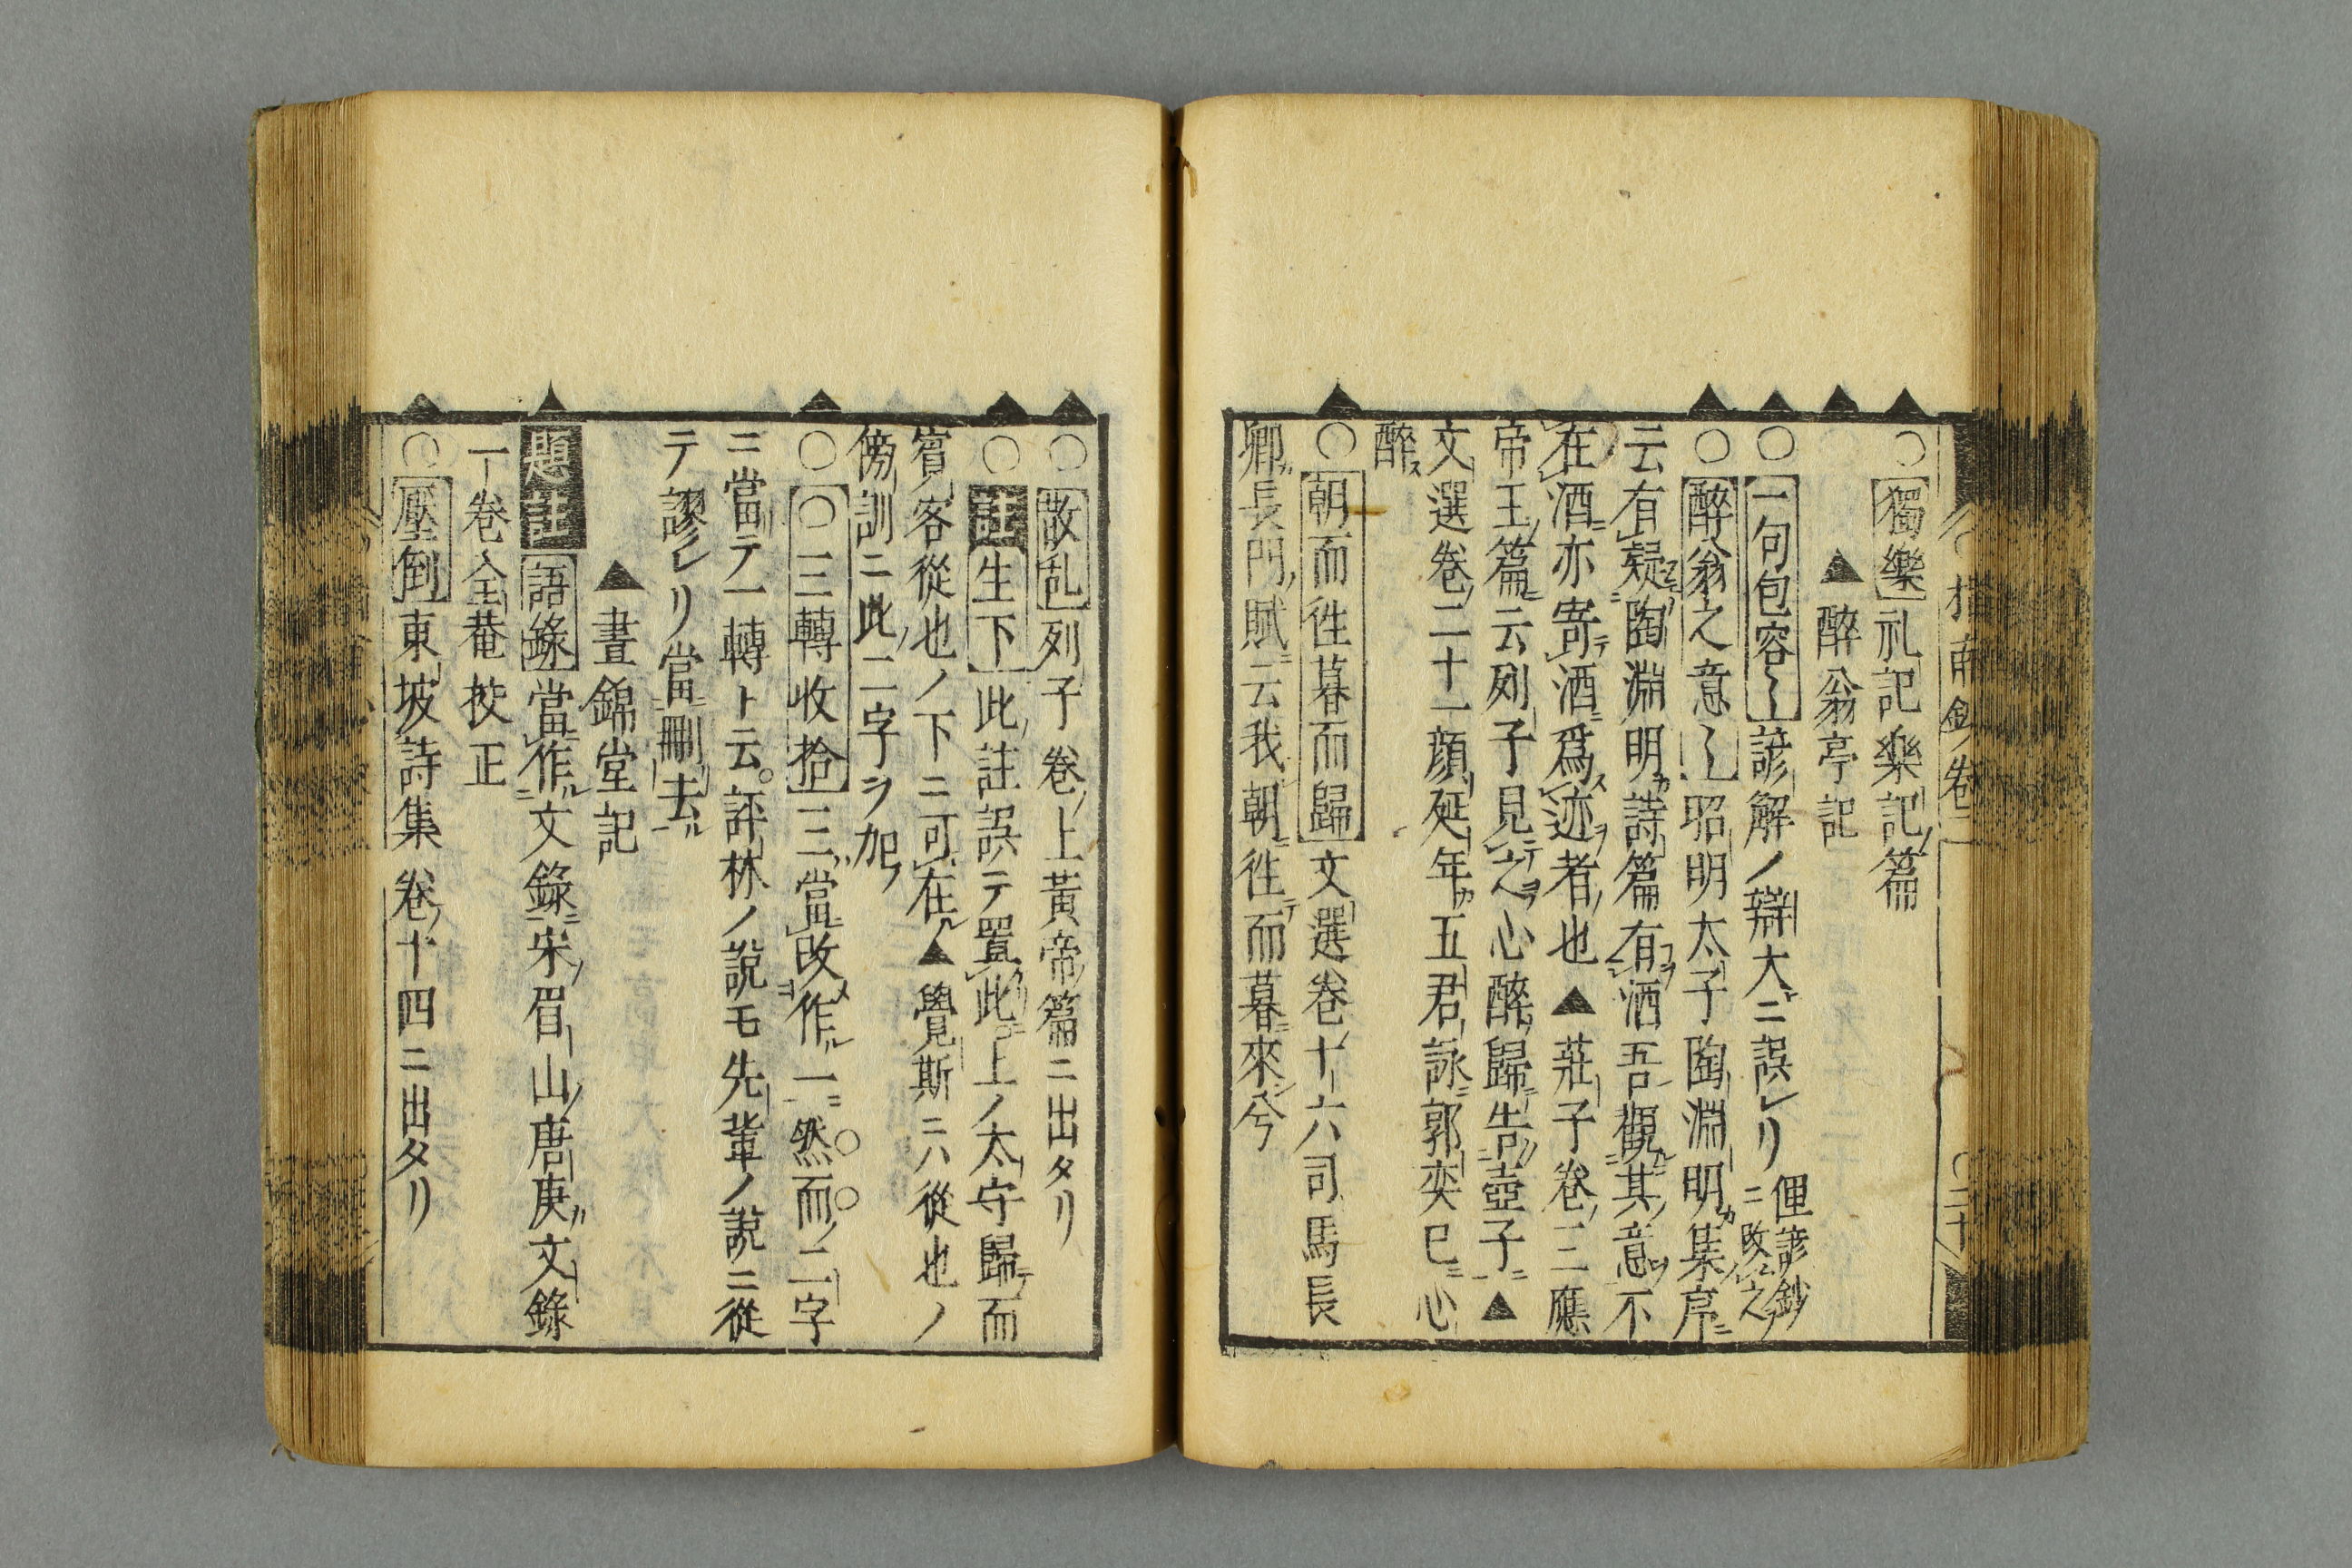 指南鈔卷二 〇二十
〇獨樂礼記楽記ノ篇
▲醉翁亭記
〇一句包容〻諺解ノ辯大ニ誤レリ俚諺鈔ニ改之
〇醉翁之意〻昭明太子陶淵明カ集ノ序ニ
云有疑陶淵明カ詩篇有酒吾觀其意不
在酒亦寄酒爲迹者也▲莊子卷三應
帝王篇ニ云列子見之心醉歸告壺子▲
文選卷二十一顔延年カ五君詠郭奕巳心
醉ス
〇朝而徃暮而歸文選卷十六司馬長
卿カ長門ノ賦ニ云我朝徃而暮來兮
〇散乱列子卷ノ上黃帝ノ篇ニ出タリ
〇註生下此註誤テ置此上ノ太守歸テ而
賓客從也ノ下ニ可在▲覺斯ニハ從也ノ
傍訓ニ此ノ二字ヲ加フ
〇〇三轉收拾三當改作一然而ノ二字
ニ當テ一轉ト云。評林ノ說モ先輩ノ說ニ從
テ謬レリ當刪去
▲晝錦堂記
題註語錄當作文錄宋ノ眉山ノ唐庚カ文錄
一卷人全菴挍正
〇壓倒東坡詩集卷ノ十四ニ出タリ